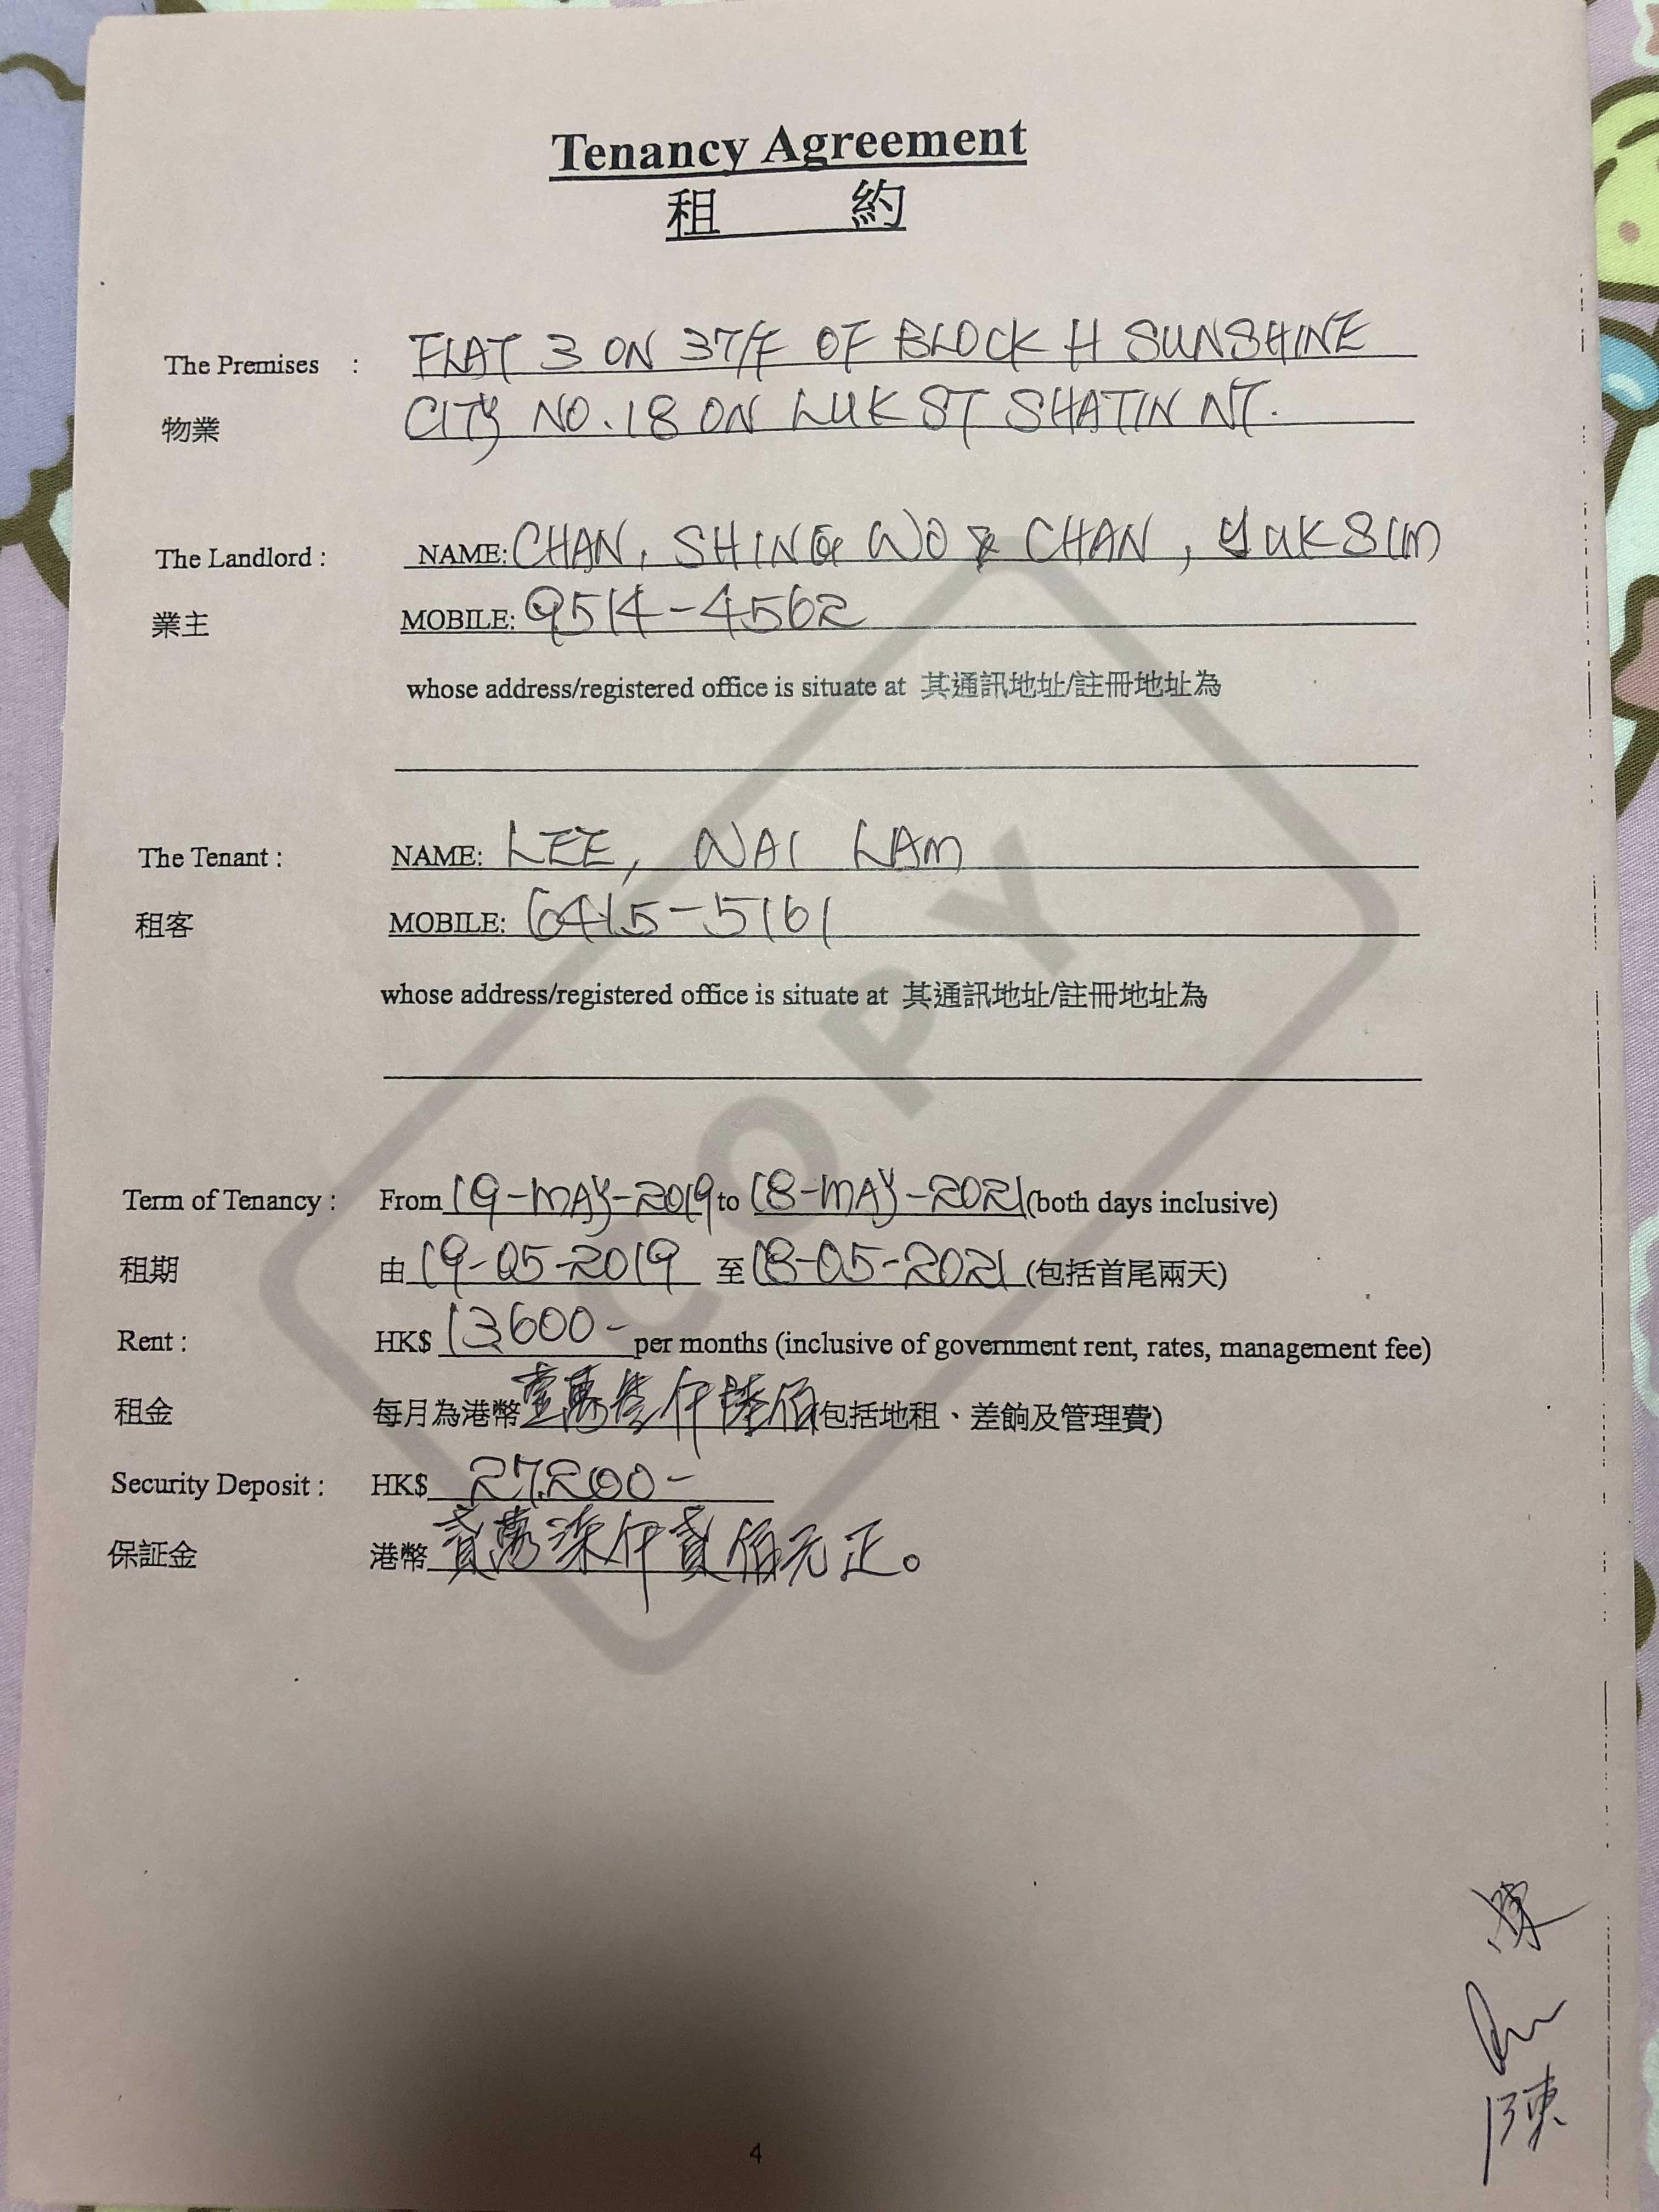 Tenancy Agreement
租 約
The Premises : FLAT 3 ON 37/F OF BLOCK H SUNSHINE
物業 CITY NO. 18 ON LUK ST SHATIN NT.
The Landlord : NAME: CHAN, SHING WO & CHAN, YUK SIM
業主 MOBILE: 9514-4562
whose address/registered office is situate at 其通訊地址/註冊地址為
The Tenant : NAME: LEE, WAI LAM
租客 MOBILE: 6415-5161
whose address/registered office is situate at 其通訊地址/註冊地址為
Term of Tenancy : From 19-MAY-2019 to 18-MAY-2021 (both days inclusive)
租期 由 19-05-2019 至 18-05-2021 (包括首尾兩天)
Rent : HK$ 13,600- per months (inclusive of government rent, rates, management fee)
租金 每月為港幣壹萬叁仟陸佰(包括地租、差餉及管理費)
Security Deposit : HK$ 27,200-
保証金 港幣 貳萬柒仟貳佰元正。
COPY
陳
陳
4